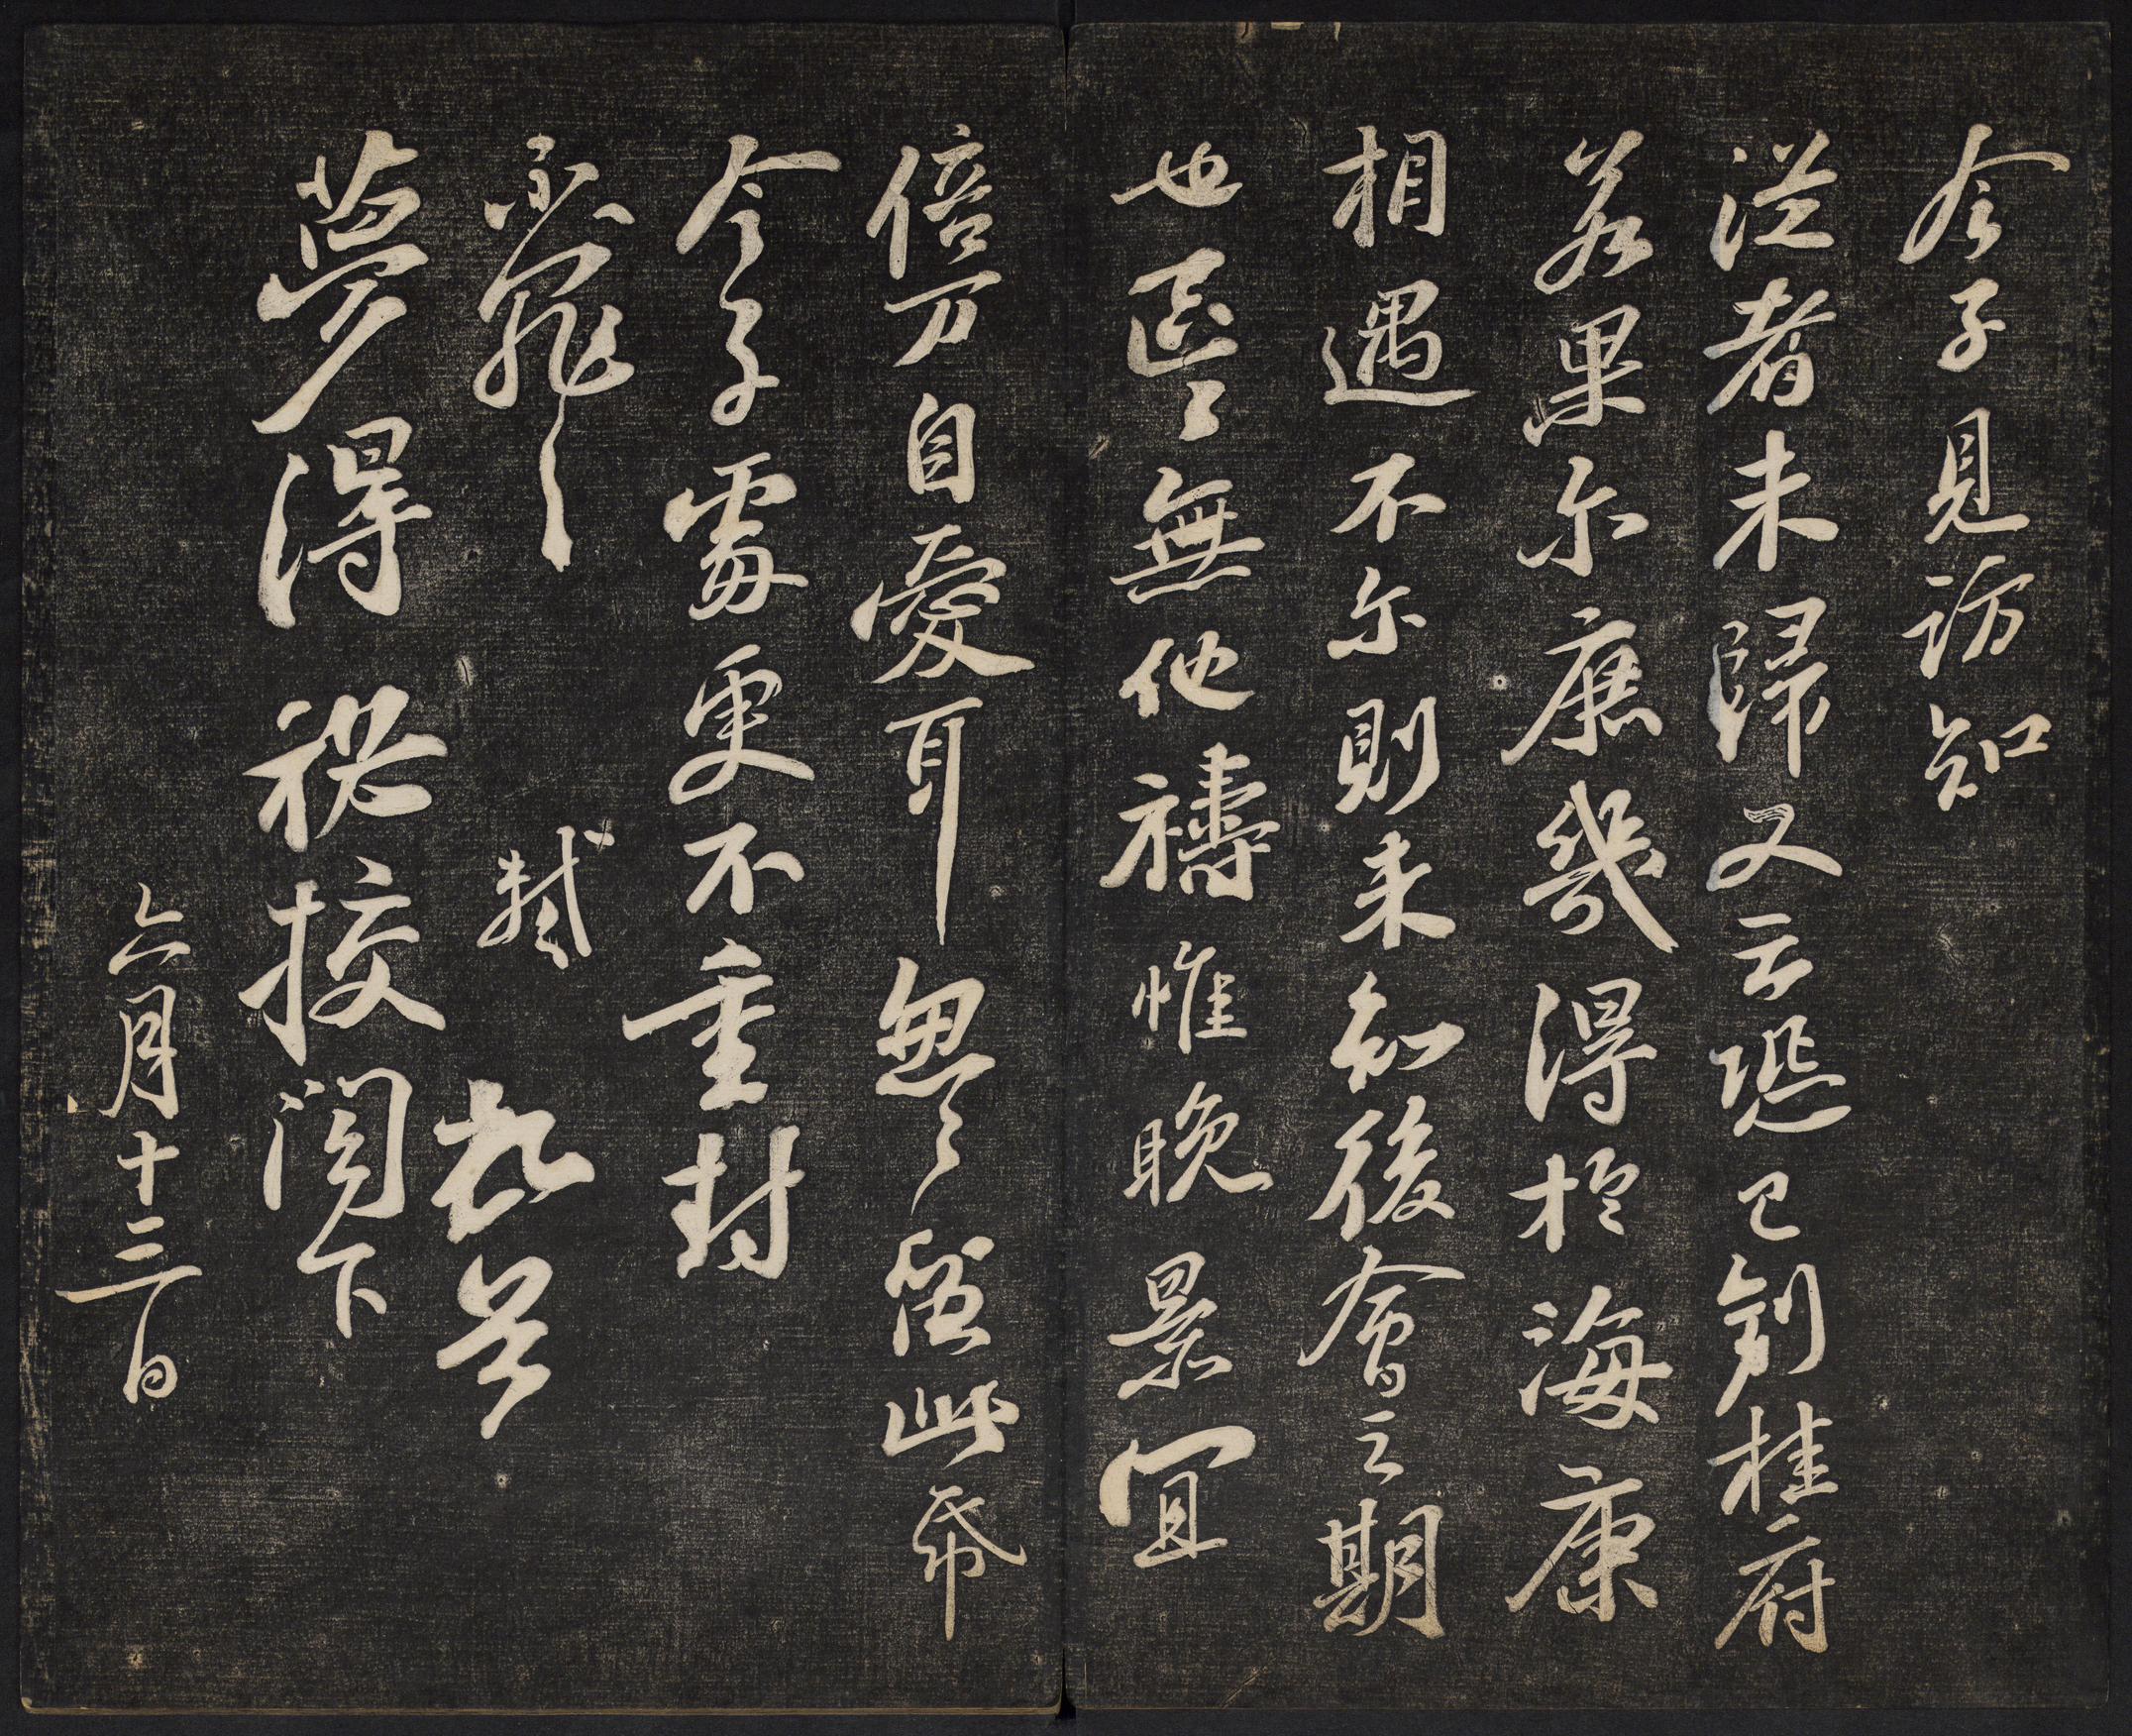 令子見訪知
從者未歸又云恐已到桂府
若果尔庶幾得於海康
相遇不尔則未知後會之期
也區區無他禱惟晚景宜
倍万自愛耳怱怱留此帋
令子處更不重封
不罪不罪 軾 頓首
夢得祕校閣下
六月十三日